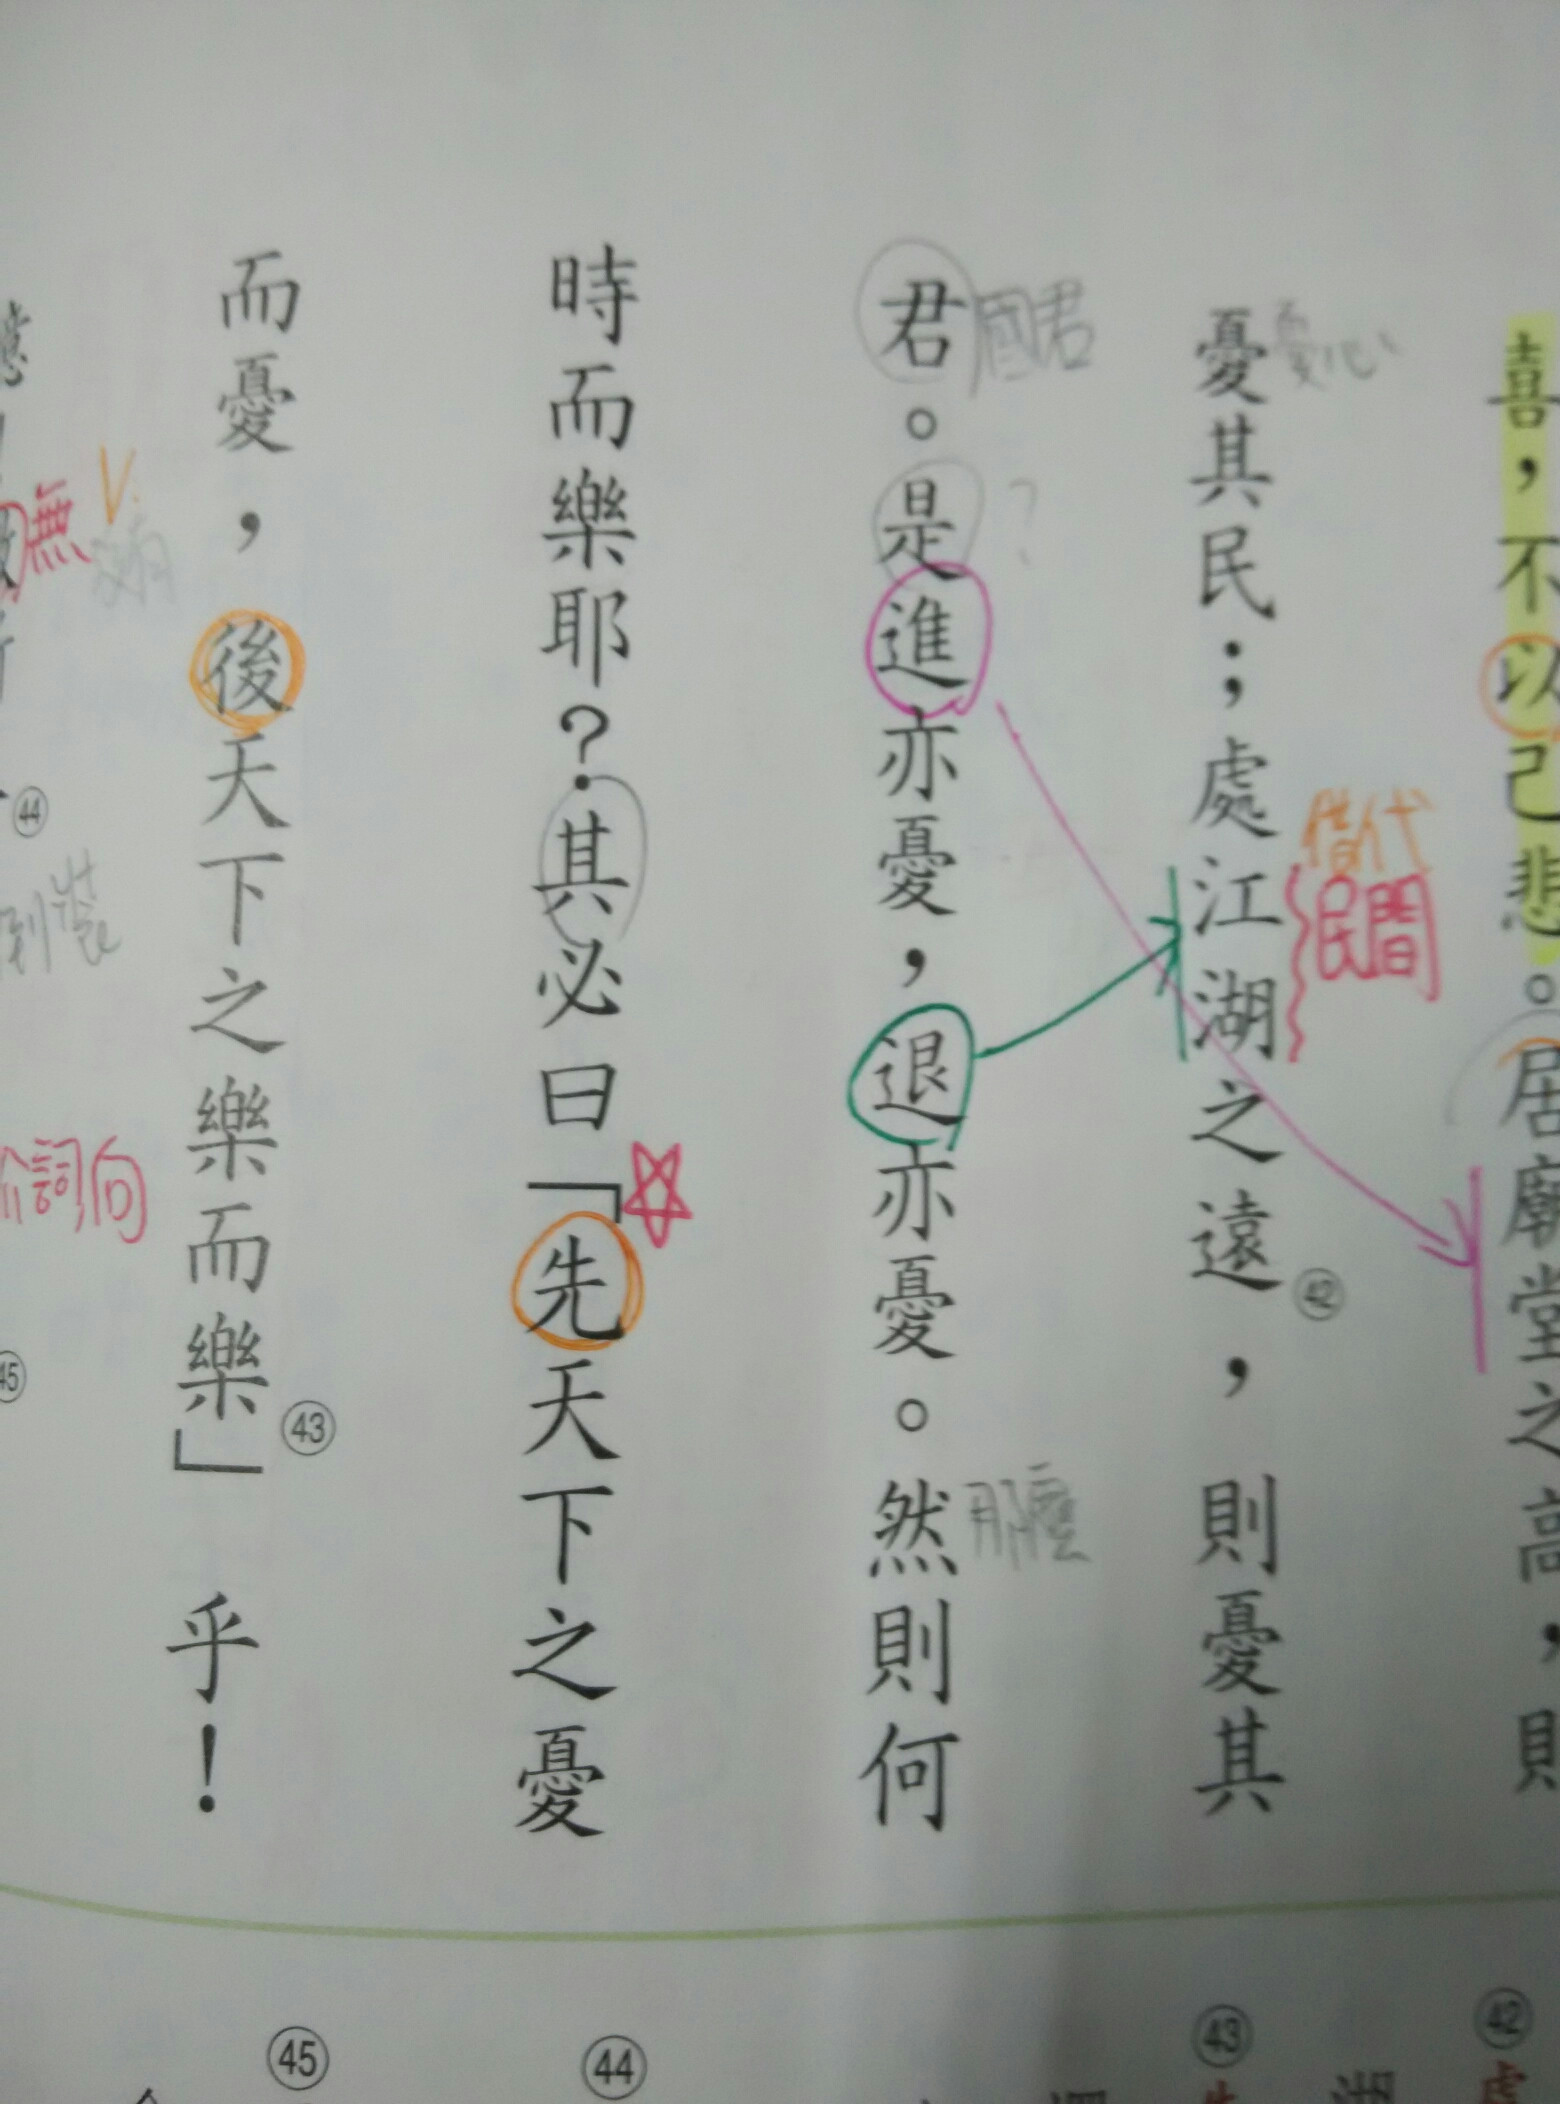 喜，不以己悲。居廟堂之高，則
憂其民；處江湖之遠㊷，則憂其
憂心
借代
民間
君。是進亦憂，退亦憂。然則何
國君
?
那麼
時而樂耶？其必曰「先天下之憂
而憂，後天下之樂而樂」㊸乎！
V.
無
㊹
倒裝
介詞，向
㊺
㊷
㊸
㊹
㊺